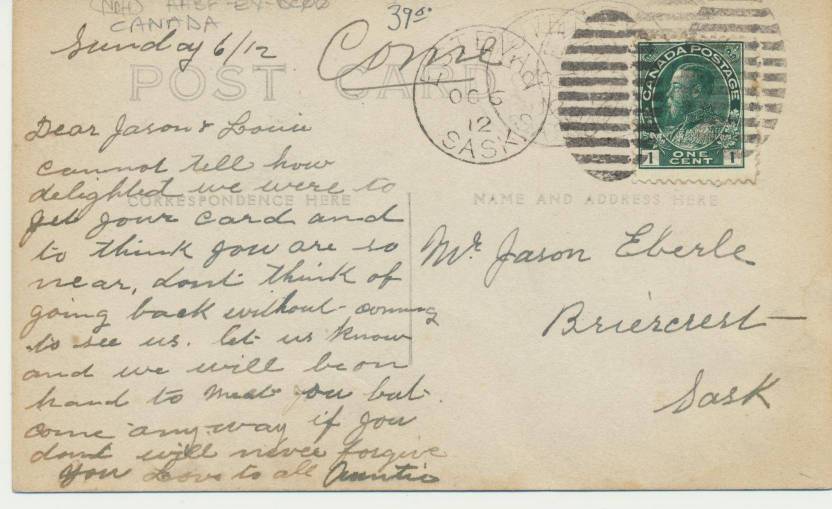 39⁵⁰
CANADA
Sunday 6/12
Come
POST CARD
OC 6
12
SASK
CANADA POSTAGE
1 ONE CENT 1
Dear Jason & Louie
cannot tell how
delighted we were to
CORRESPONDENCE HERE
NAME AND ADDRESS HERE
get your card and
to think you are so
near, dont think of
going back without coming
to see us. let us know
and we will be on
hand to meet you but
come any-way if you
dont will never forgive
you Love to all Auntie
Mr. Jason Eberle
Briercrest
Sask